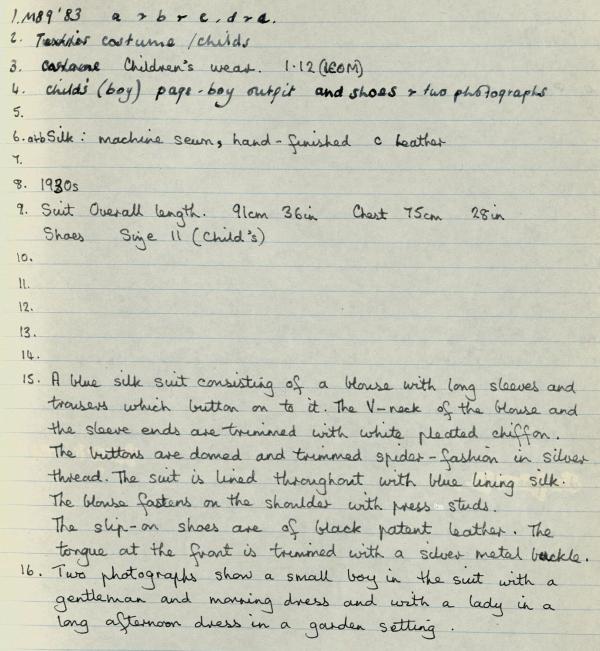 1. M89'83 a & b & c, d & e.
2. Textiles costume / childs
3. costume Children's wear. 1.12 (LEOM)
4. child's (boy) page-boy outfit and shoes & two photographs
5.
6. a+b Silk : machine sewn, hand-finished c Leather
7.
8. 1930s
9. Suit Overall length. 91cm 36in Chest 75cm 28in
Shoes Size 11 (Child's)
10.
11.
12.
13.
14.
15. A blue silk suit consisting of a blouse with long sleeves and
trousers which button on to it. The V-neck of the blouse and
the sleeve ends are trimmed with white pleated chiffon.
The buttons are domed and trimmed spider-fashion in silver
thread. The suit is lined throughout with blue lining silk.
The blouse fastens on the shoulder with press studs.
The slip-on shoes are of black patent leather. The
tongue at the front is trimmed with a silver metal buckle.
16. Two photographs show a small boy in the suit with a
gentleman and morning dress and with a lady in a
long afternoon dress in a garden setting.